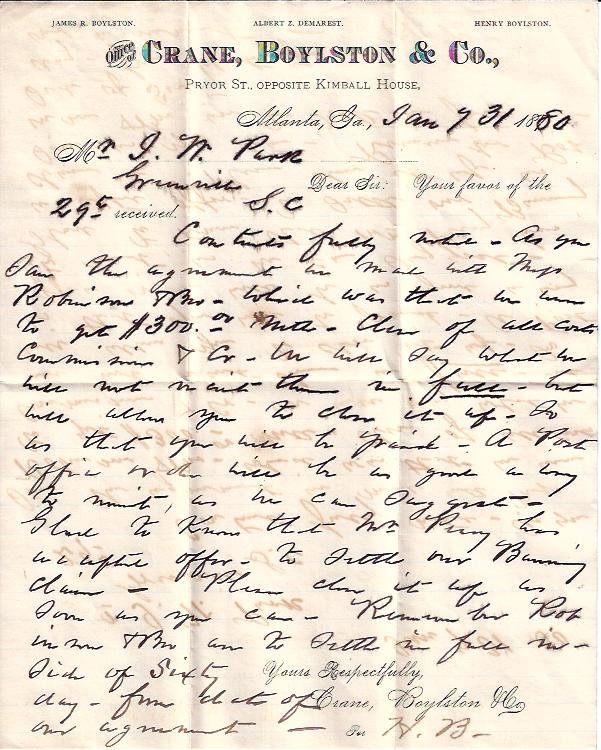 JAMES R. BOYLSTON. ALBERT Z. DEMAREST. HENRY BOYLSTON.
Office of CRANE, BOYLSTON & CO.,
PRYOR ST., OPPOSITE KIMBALL HOUSE,
Atlanta, Ga., Jany 31 1880
Mr J. W.
Greenville Dear Sir: Your favor of the
29th received. S.C
Contents fully noted - As you
saw the agreement we made with Mess
Robinson & Bro - which was that we were
to get $300.00 Nett - Clear of all costs
Commissions & Co - We will say that we
will not in full - but
will allow you to close it up - So
as that you will be paid - A Post
office order will be as good a way
to remit, as we can suggest -
Glad to Know that Mr Perry has
accepted offer - to settle our
claim - Please close it up as
soon as you can - Remember Rob
inson & Bro are to settle in full in-
side of Sixty Yours Respectfully,
days - from date of Crane, Boylston & Co
our agreement - Per H. B -